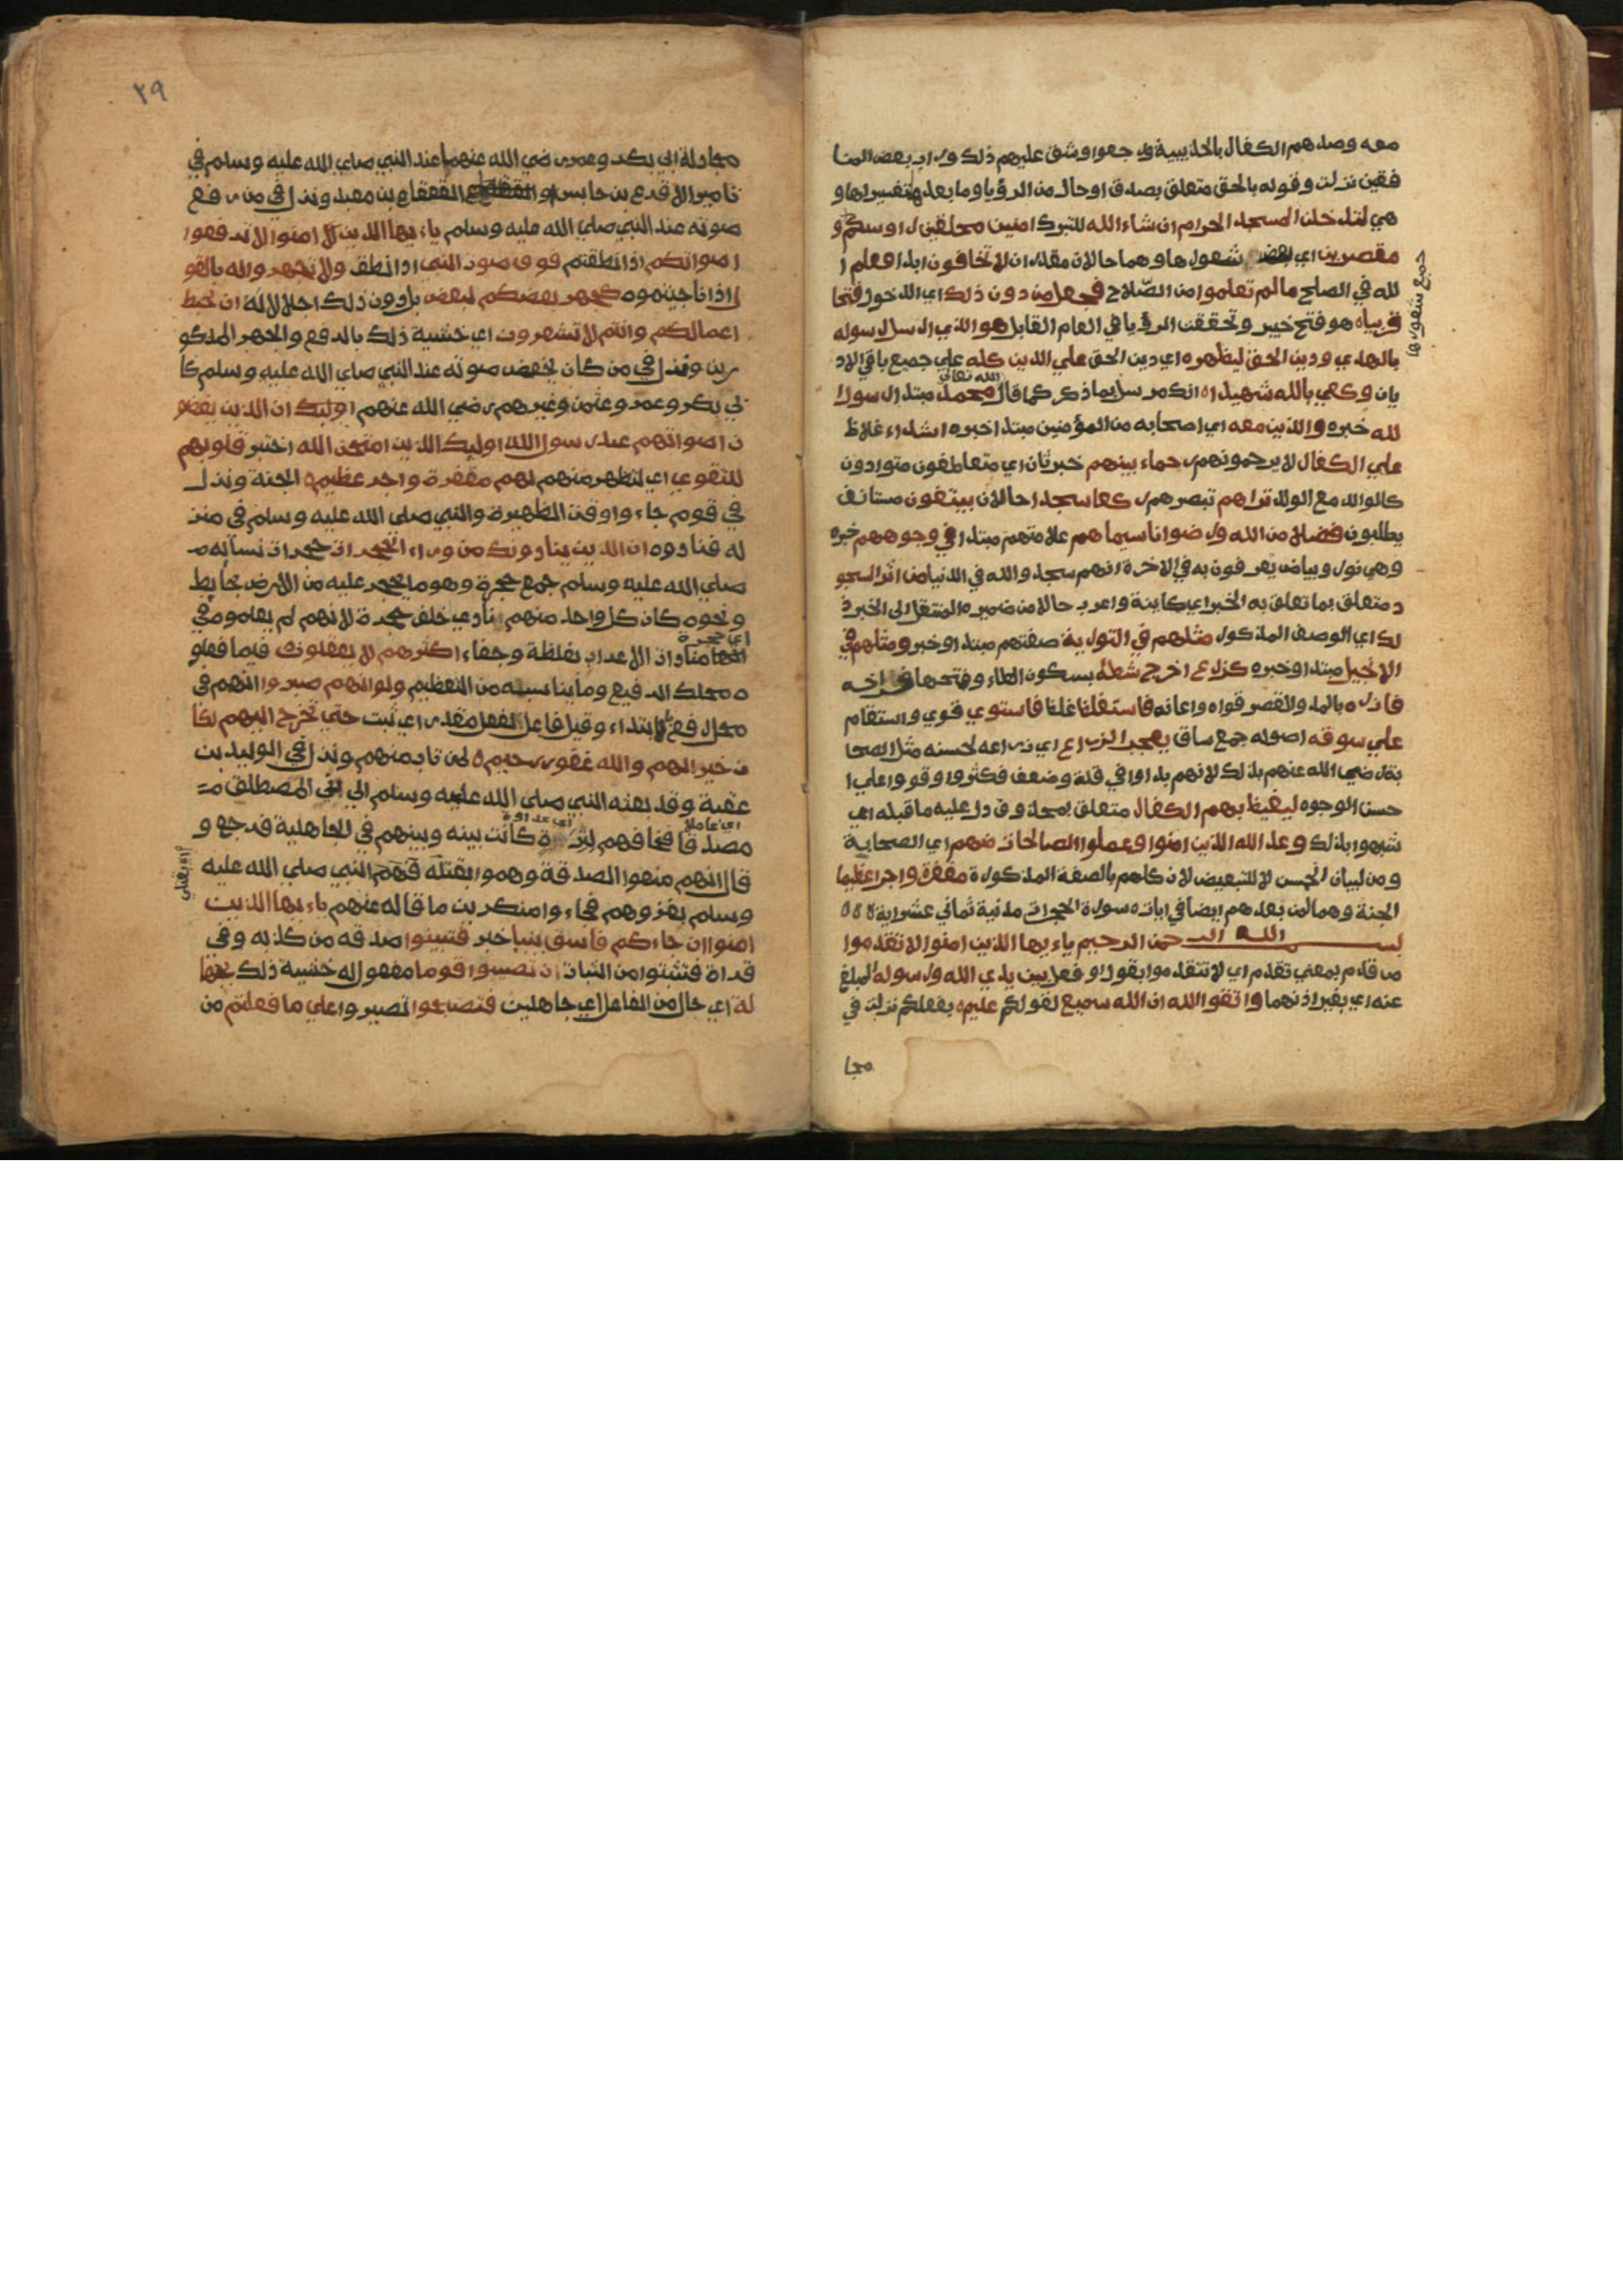 معه وصدهم الكفار بالحديبية ورجعوا وشق عليهم ذلك وراب بعض المنا
فقين نزلت وقوله بالحق متعلق بصدق او حال من الرؤيا وما بعدها تفسيرها و
هي لتدخلن المسجد الحرام ان شاء الله للتبرك امنين محلقين رءوسكم و
مقصرين اي بعض شعورها وهما حالان مقدرتان لا تخافون ابدا فعلم ا
جميع شعورها
لله في الصلح ما لم تعلموا من الصلاح فجعل من دون ذلك اي الدخول فتحا
قريباه هو فتح خيبر وتحققت الرؤيا في العام القابل هو الذي ارسل رسوله
بالهدي ودين الحق ليظهره اي دين الحق علي الدين كله علي جميع باقي الاد
يان وكفي بالله شهيدا ه انك مرسل بما ذكر كما قال الله تعالى محمد مبتدا رسول ا
لله خبره والذين معه اي اصحابه من المؤمنين مبتدا خبره اشداء غلاظ
علي الكفار لا يرحمونهم رحماء بينهم خبر ثان اي متعاطفون متوادون
كالوالد مع الولد تراهم تبصرهم ركعا سجدا حالان يبتغون مستانف
يطلبون فضلا من الله ورضوانا سيماهم علامتهم مبتدا في وجوههم خبره
وهي نور وبياض يعرفون به في الاخرة انهم سجدوا لله في الدنيا من اثر السجو
د متعلق بما تعلق به الخبر اي كاينة واعرب حالا من ضميره المنتقل الى الخبر ذ
لك اي الوصف المذكور مثلهم في التورية صفتهم مبتدا وخبر ومثلهم في
الانجيل مبتدا وخبره كزرع اخرج شطئه بسكون الطاء وفتحها فراخه
فازره بالمد والقصر قواه واعانه فاستغلظ غلظ فاستوي قوي واستقام
علي سوقه اصوله جمع ساق يعجب الزراع اي زراعه لحسنه مثل الصحا
بة رضي الله عنهم بذلك لانهم بداوا في قلة وضعف فكثروا وقووا علي ا
حسن الوجوه ليغيظ بهم الكفار متعلق بمحذوف دل عليه ما قبله اي
شبهوا بذلك وعد الله الذين امنوا وعملوا الصالحات منهم اي الصحابة
ومن لبيان الجنس لا للتبعيض لان كلهم بالصفة المذكورة مغفرة واجرا عظيما
الجنة وهما لمن بعدهم ايضا في ايات ه سورة الحجرات مدنية ثماني عشر اية ه ه ه
بسم الله الرحمن الرحيم ياءيها الذين امنوا لا تقدموا
من قدم بمعني تقدم اي لا تتقدموا بقول او فعل بين يدي الله ورسوله المبلغ
عنه اي بغير اذنهما واتقوا الله ان الله سميع لقولكم عليم ه بفعلكم نزلت في
مجا
٢٩
مجادلة ابي بكر وعمر رضي الله عنهما عند النبي صلي الله عليه وسلم في
تامير الاقرع بن حابس او القعقاع بن معبد ونزل في من رفع
صوته عند النبي صلي الله عليه وسلم ياءيها الذين امنوا لا ترفعوا
اصواتكم اذا نطقتم فوق صوت النبي اذا نطق ولا تجهروا له بالقو
ل اذا ناجيتموه كجهر بعضكم لبعض بل دون ذلك اجلالا له ان تحبط
اعمالكم وانتم لا تشعرون اي خشية ذلك بالرفع والجهر المذكو
رين ونزل في من كان يخفض صوته عند النبي صلي الله عليه وسلم كا
بي بكر وعمر وعثمن وغيرهم رضي الله عنهم اوليك ان الذين يغضو
ن اصواتهم عند رسول الله اوليك الذين امتحن الله اختبر قلوبهم
للتقوي اي لتظهر منهم لهم مغفرة واجر عظيم ه الجنة ونزل
في قوم جاءوا وقت الظهيرة والنبي صلى الله عليه وسلم في منز
له فنادوه ان الذين ينادونك من وراء الحجرات حجرات نسائه
صلي الله عليه وسلم جمع حجرة وهو ما يحجر عليه من الارض بحايط
ونحوه كان كل واحد منهم نادي خلف حجرة لانهم لم يعلموه في
اي حجرة
مناداة الاعراب بغلظة وجفاء اكثرهم لا يعقلون فيما فعلو
ه محلك الرفيع وما يناسبه من التعظيم ولو انهم صبروا انهم في
محل رفع بالابتداء وقيل فاعل لفعل مقدر اي ثبت حتي تخرج اليهم لكا
ن خيرا لهم والله غفور رحيم ه لمن تاب منهم ونزل في الوليد بن
عقبة وقد بعثه النبي صلى الله عليه وسلم الي بني المصطلق
اي عاملا
اي عداوة
مصدقا فخافهم لترة كانت بينه وبينهم في الجاهلية فرجع و
قال انهم منعوا الصدقة وهموا بقتله فهم النبي صلي الله عليه
وسلم بغزوهم فجاءوا منكرين ما قاله عنهم ياءيها الذين
امنوا ان جاءكم فاسق بنبا خبر فتبينوا صدقه من كذبه وفي
قراة فتثبتوا من الثبات ان تصيبوا قوما مفعول له خشية ذلك بجها
لة اي حال من الفاعل اي جاهلين فتصبحوا تصيروا علي ما فعلتم من